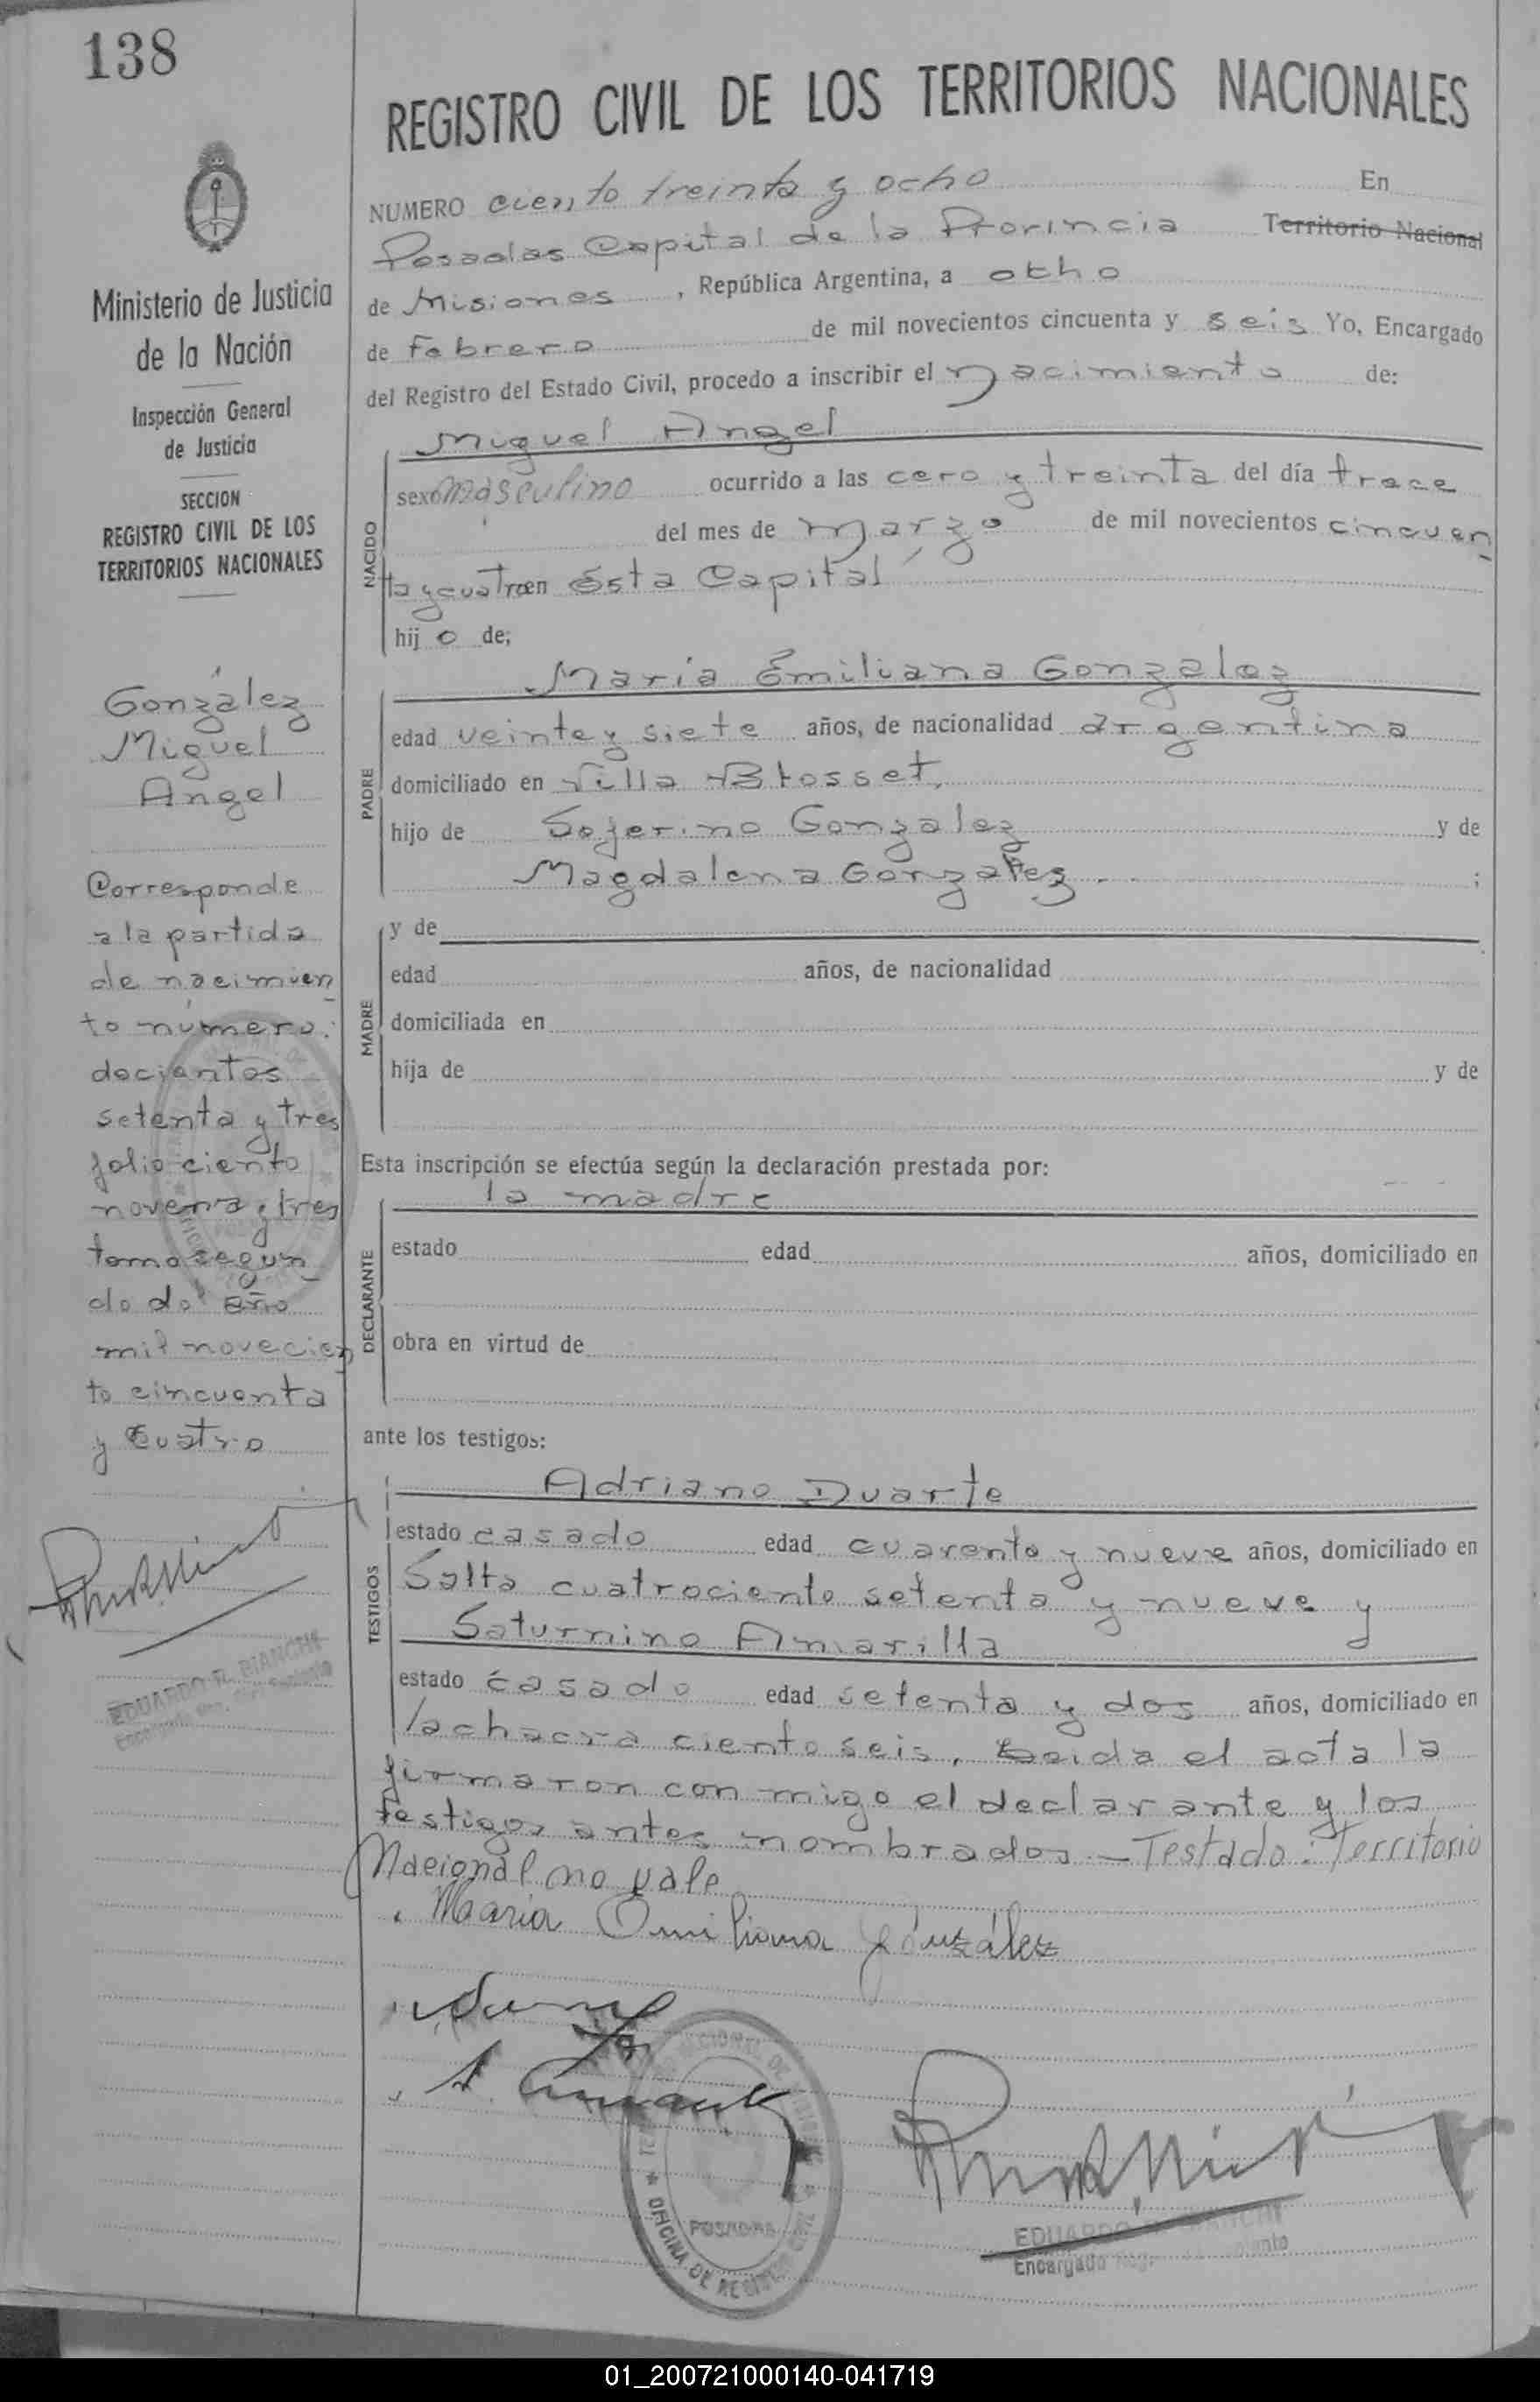 138
REGISTRO CIVIL DE LOS TERRITORIOS NACIONALES
NUMERO ciento treinta y ocho En
Posadas Capital de la Provincia Territorio Nacional
de Misiones, República Argentina, a ocho
de Febrero de mil novecientos cincuenta y seis Yo, Encargado
del Registro del Estado Civil, procedo a inscribir el nacimiento de:
Miguel Angel
NACIDO
sexo masculino ocurrido a las cero y treinta del día trece
del mes de marzo de mil novecientos cincuen
ta y cuatro en ésta Capital
hijo de;
Maria Emiliana Gonzalez
PADRE
edad veinte y siete años, de nacionalidad argentina
domiciliado en Villa Blosset,
hijo de Seferino Gonzalez y de
Magdalena Gonzalez ;
MADRE
y de
edad años, de nacionalidad
domiciliada en
hija de y de
Esta inscripción se efectúa según la declaración prestada por:
la madre
DECLARANTE
estado edad años, domiciliado en
obra en virtud de
ante los testigos:
Adriano Duarte
TESTIGOS
estado casado edad cuarenta y nueve años, domiciliado en
Salta cuatrociento setenta y nueve y
Saturnino Amarilla
estado casado edad setenta y dos años, domiciliado en
lachacra ciento seis, Leida el acta la
firmaron con migo el declarante y los
testigos antes nombrados.— Testado: Territorio
Nacional no vale
Maria Emiliana González
POSADAS
OFICINA DE REGISTRO CIVIL
EDUARDO R. BIANCHI
Encargado
Ministerio de Justicia
de la Nación
Inspección General
de Justicia
SECCION
REGISTRO CIVIL DE LOS
TERRITORIOS NACIONALES
González
Miguel
Angel
Corresponde
a la partida
de nacimien
to número:
docientos
setenta y tres
folio ciento
noventa y tres
tomo segun
do del año
mil novecien
to cincuenta
y cuatro
EDUARDO R. BIANCHI
01_200721000140-041719